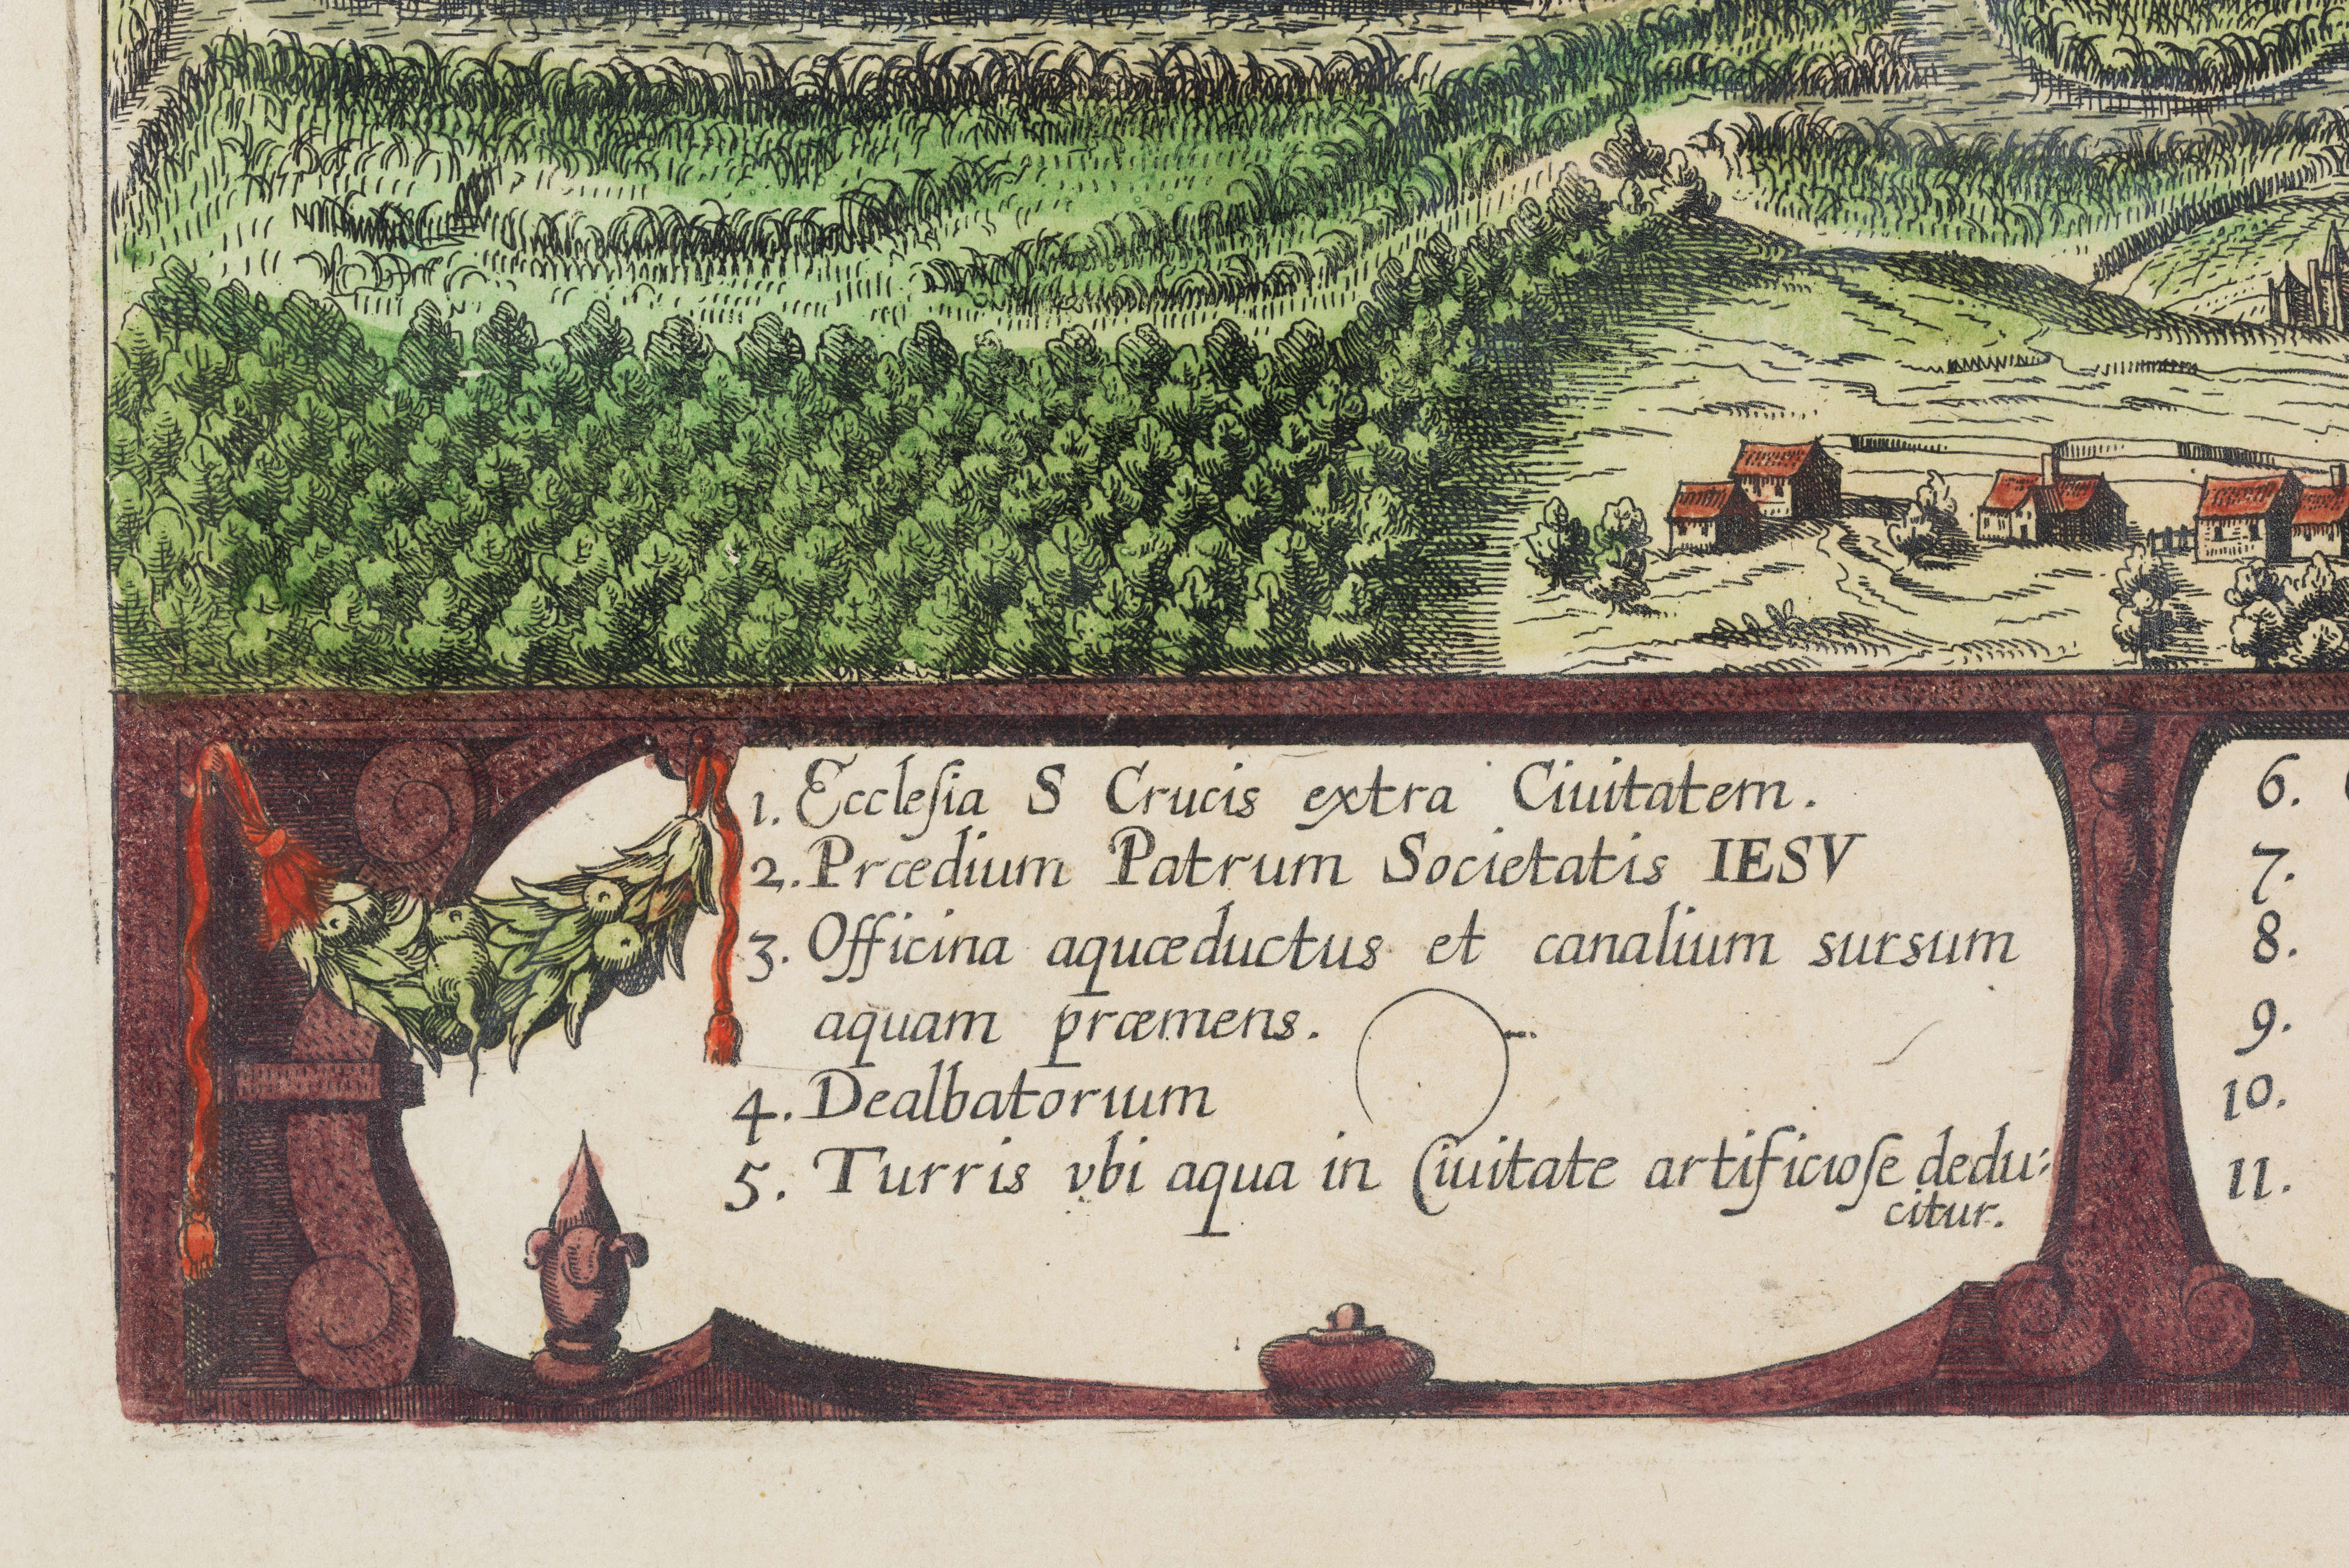 1. Eccleſia S Crucis extra Ciuitatem.
2. Prædium Patrum Societatis IESV
3. Officina aquæductus et canalium sursum
aquam præmens.
4. Dealbatorium
5. Turris vbi aqua in Ciuitate artificioſe dedu:
citur.
6.
7.
8.
9.
10.
11.